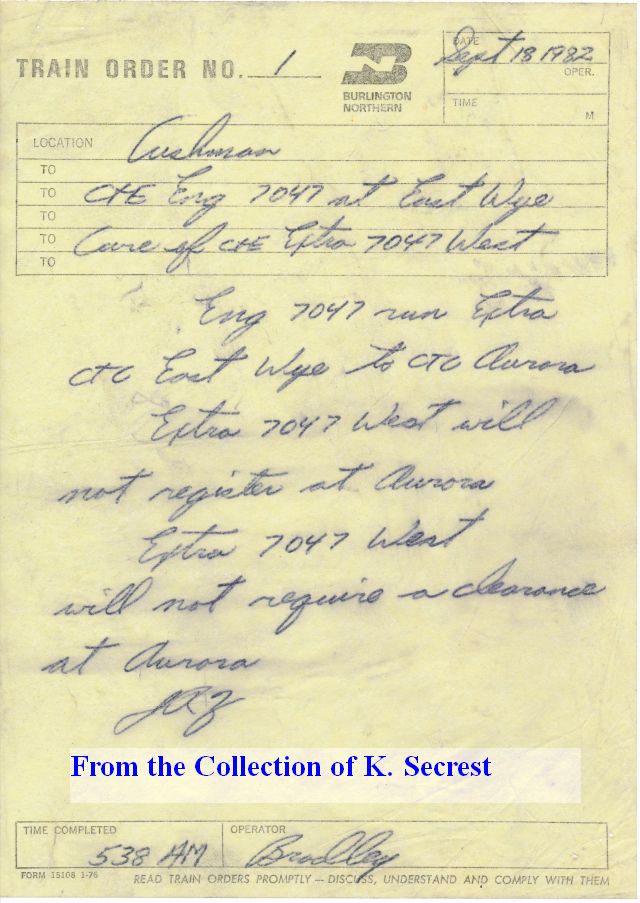 TRAIN ORDER NO. 1
BURLINGTON
NORTHERN
DATE
Sept 18 1982
OPER.
TIME
M
LOCATION Cushman
TO
TO C&E Eng 7047 at East Wye
TO
TO Care of C&E Extra 7047 West
TO
Eng 7047 run Extra
CTC East Wye to CTC Aurora
Extra 7047 West will
not register at Aurora
Extra 7047 West
will not require a clearance
at Aurora
JRZ
From the Collection of K. Secrest
TIME COMPLETED
538 AM
OPERATOR
Bradley
FORM 15108 1-76
READ TRAIN ORDERS PROMPTLY — DISCUSS, UNDERSTAND AND COMPLY WITH THEM